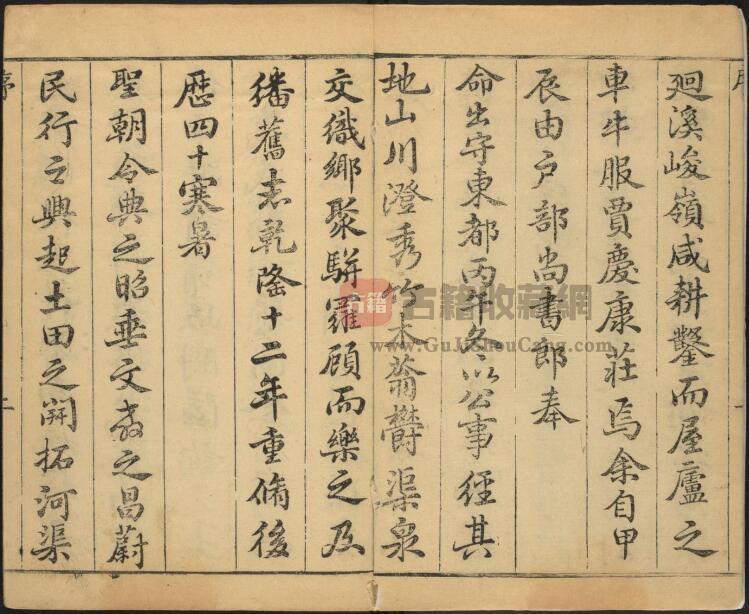 廻溪峻嶺咸耕鑿而屋廬之
車牛服賈慶康莊焉余自甲
辰由戶部尚書郎奉
命出守東都丙午冬以公事經其
地山川澄秀竹木蓊欝渠泉
交織鄉聚駢羅顧而樂之及
繙舊志乾隆十二年重脩後
歷四十寒暑
聖朝令典之昭垂文教之昌蔚
民行之興起土田之開拓河渠
序
二
古籍
古籍收藏網
www.GuJiShouCang.com